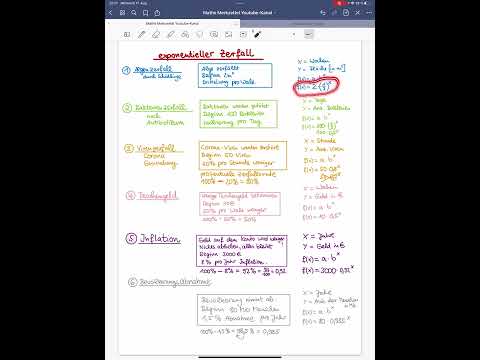 Mathe Merkzettel Youtube-Kanal
exponentieller Zerfall
① Algenzerfall
Alge zerfällt
Beginn 2m²
X = Wochen
f(x) = a·b^x
f(x) = 2·(½)^x
② Bakterienzerfall
nach
Antibiotikum
Bakterien werden getötet
Beginn 100 Bakterien
Halbierung pro Tag
X = Tage
Y = Anz. Bakterien
f(x) = a·b^x
③ Virenzerfall
Corona
Corona-Viren werden zerstört
Beginn 50 Viren
20% pro Stunde weniger
prozentuale Zerfallsrate
100% - 20% = 80%
X = Stunde
Y = Anz. Viren
f(x) = a·b^x
④ Taschengeld
Beginn 10€
50% pro Woche weniger
100% - 50% = 50%
X = Wochen
Y = Geld in €
f(x) = a·b^x
f(x) = 10·0,5^x
⑤ Inflation
Geld auf dem Konto wird weniger
Nichts abholen, alles bleibt
Beginn 3000€
8% pro Jahr Inflation.
100% - 8% = 92% = 92/100 = 0,92
X = Jahre
Y = Geld in €
f(x) = a·b^x
f(x) = 3000·0,92^x
⑥ Bevölkerungsabnahme
Bevölkerung nimmt ab.
Beginn 80 Mio Menschen
1,5% Abnahme pro Jahr
100% - 1,5% = 98,5% = 0,985
X = Jahre
Y = Anz. der Menschen
in Mio
f(x) = a·b^x
f(x) = 80·0,985^x